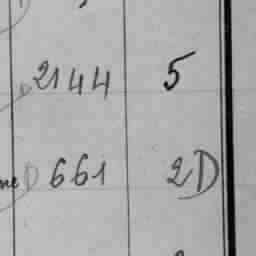 2144 5
D 661 2D